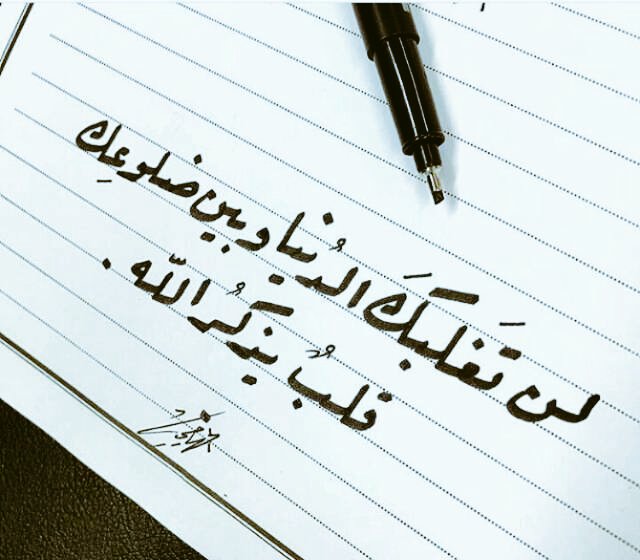 لن تَغلبكَ الدُنيا وبين ضلوعِك
قلبٌ يذكُر اللّه .